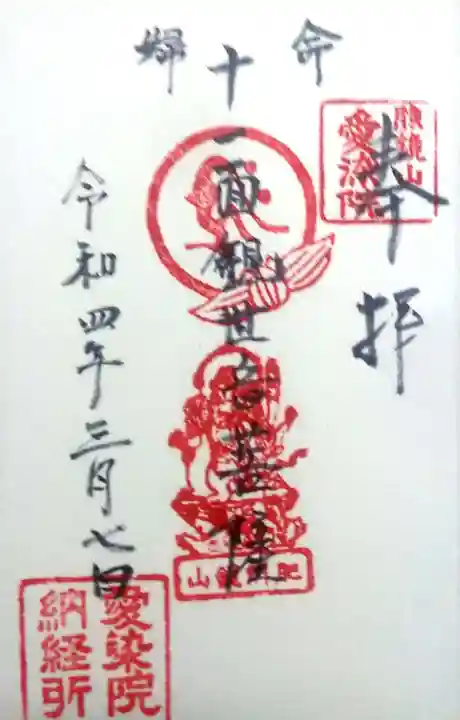 奉拝
愛染院
命
十一面観世音菩薩
帰
令和四年三月七日
愛染院
納経所